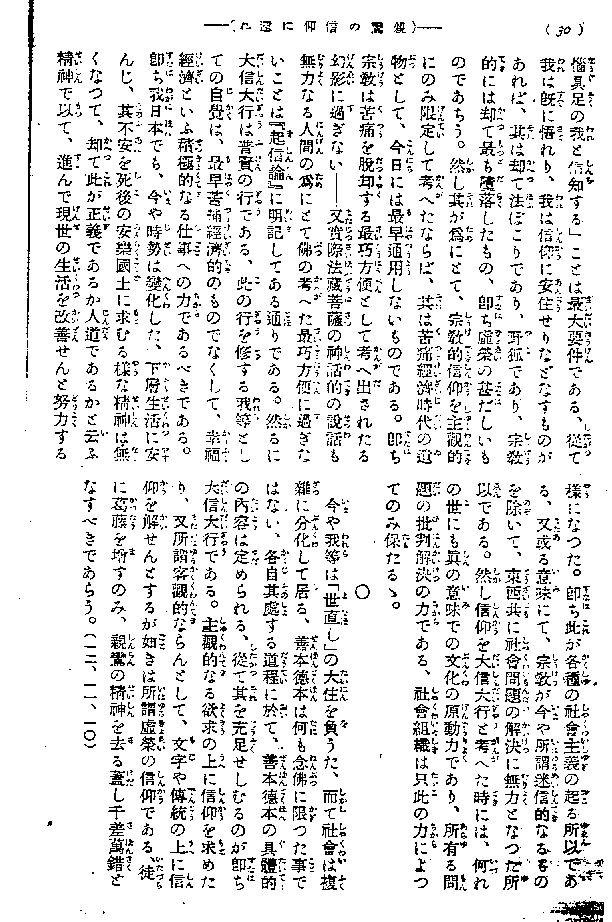 (30)
――(親鸞の信仰に還れ)――
惱具足の我と信知する」ことは最大要件である、從て
我は既に悟れり、我は信仰に安住せりなどなすものが
あれば、其は却て法ぼこりであり、野狐であり、宗敎
的には却て最も墮落したもの、卽ち虛榮の甚だしいも
のであちう。然し其が爲にとて、宗敎的信仰を主觀的
にのみ限定して考へたならば、其は苦痛經濟時代の遺
物として、今日には最早通用しないものである。卽ち
宗敎は苦痛を脫却する最巧方便として考へ出されたる
幻影に過ぎない――又實際法藏菩薩の神話的の說話も
無力なる人間の爲にとて佛の考へた最巧方便に過ぎな
いことは『起信論』に明記してある通りである。然るに
大信大行は普賢の行である、此の行を修する我等とし
ての自覺は、最早苦痛經濟的のものでなくして、幸福
經濟といふ積極的なる仕事への力であるべきである。
卽ち我日本でも、今や時勢は變化した、下層生活に安
んじ、其不安を死後の安樂國土に求むる樣な精神は無
くなつて、却て此が正義であるか人道であるかと云ふ
精神で以て、進んで現世の生活を改善せんと努力する
樣になつた。卽ち此が各種の社會主義の起る所以であ
る、又或る意味にて、宗敎が今や所謂迷信的なるもの
を除いて、東西共に社會問題の解決に無力となつた所
以である。然し信仰を大信大行と考へた時には、何れ
の世にも眞の意味での文化の原動力であり、所有る問
題の批判解決の力である、社會組織は只此の力によつ
てのみ保たるゝ。
○
今や我等は「世直し」の大任を負うた、而て社會は複
雜に分化して居る、善本德本は何も念佛に限つた事で
はない、各自其處する道程に於て、善本德本の具體的
の內容は定められる、從て其を充足せしむるのが卽ち
大信大行である。主觀的なる欲求の上に信仰を求めた
り、又所謂客觀的ならんとして、文字や傳統の上に信
仰を解せんとするが如きは所謂虛榮の信仰である、徒
に葛藤を增すのみ、親鸞の精神を去る蓋し千差萬錯と
なすべきであらう。(一二、一一、一〇)